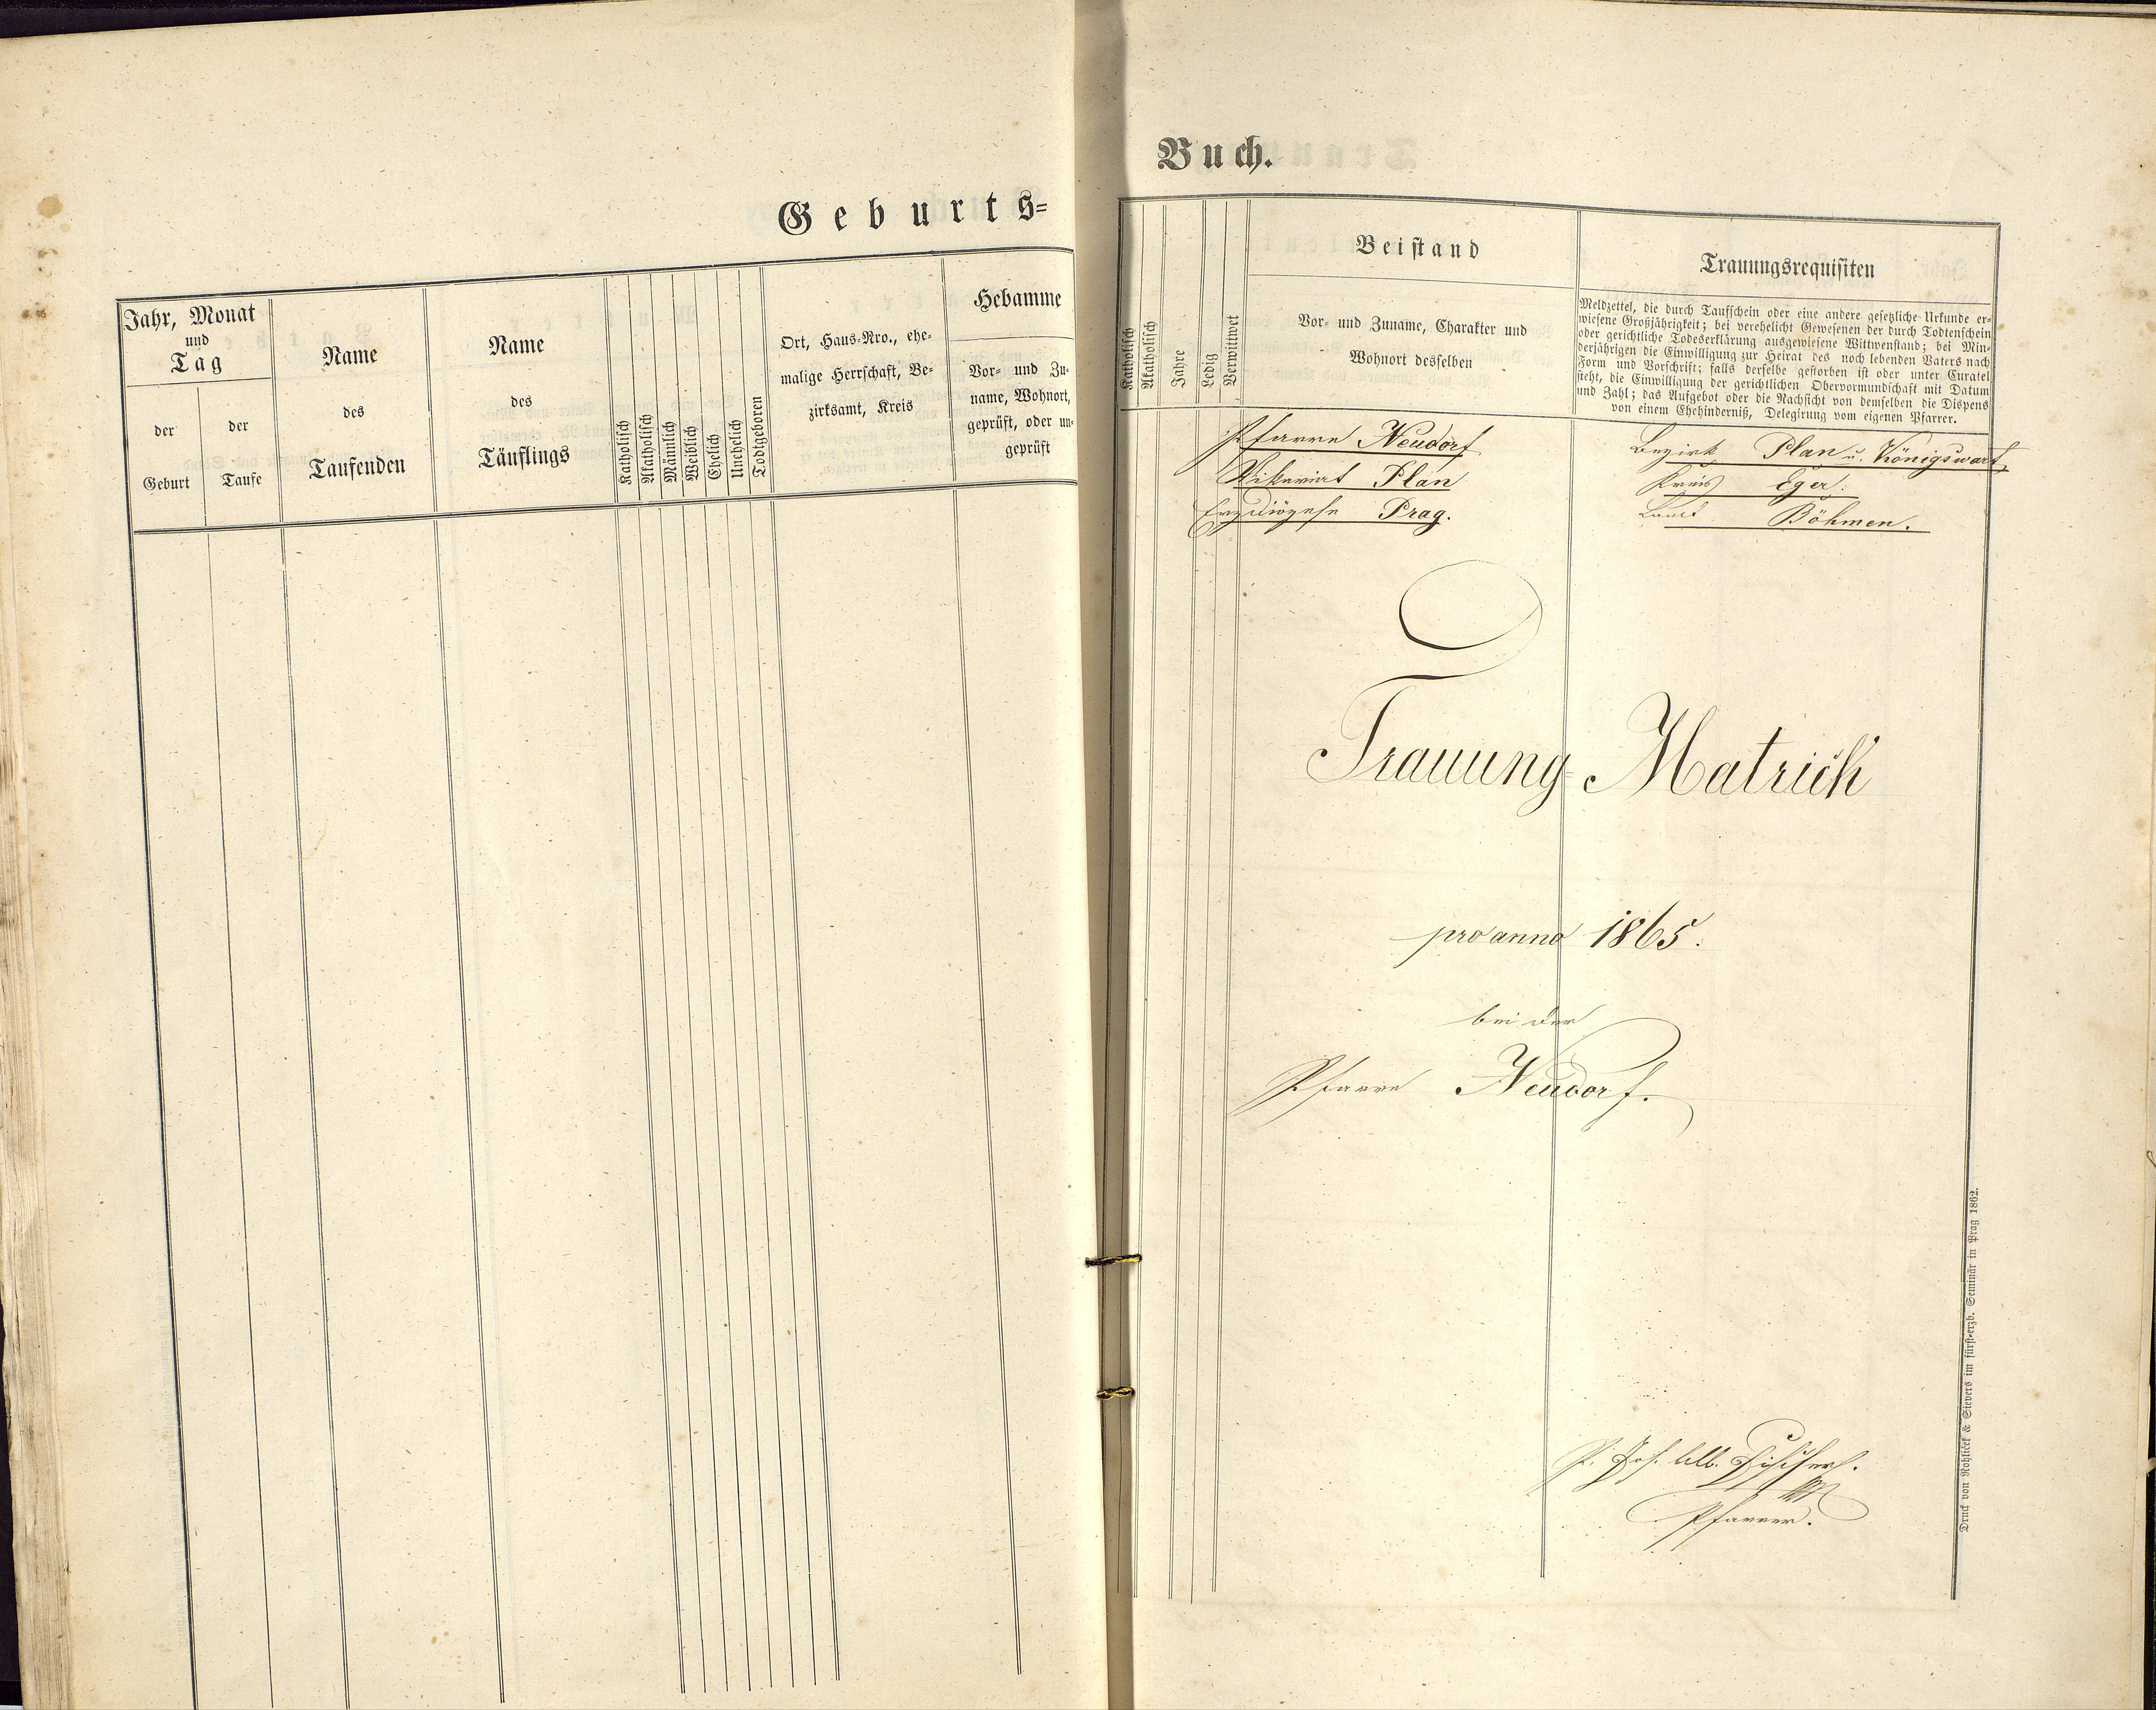 Geburts=
Jahr, Monat
und
Tag
der
Geburt
der
Taufe
Name
des
Taufenden
Name
des
Täuflings
Katholisch
Akatholisch
Männlich
Weiblich
Ehelich
Unehelich
Todtgeboren
Ort, Haus-Nro., ehe-
malige Herrschaft, Be-
zirksamt, Kreis
Hebamme
Vor- und Zu-
name, Wohnort,
geprüft, oder un-
geprüft
Buch.
Katholisch
Akatholisch
Jahre
Ledig
Verwittwet
Beistand
Vor- und Zuname, Charakter und
Wohnort desselben
Trauungsrequisiten
Meldzettel, die durch Taufschein oder eine andere gesetzliche Urkunde er-
wiesene Großjährigkeit; bei verehelicht Gewesenen der durch Todtenschein
oder gerichtliche Todeserklärung ausgewiesene Wittwenstand; bei Min-
derjährigen die Einwilligung zur Heirat des noch lebenden Vaters nach
Form und Vorschrift; falls derselbe gestorben ist oder unter Curatel
steht, die Einwilligung der gerichtlichen Obervormundschaft mit Datum
und Zahl; das Aufgebot oder die Nachsicht von demselben die Dispens
von einem Ehehinderniß, Delegirung vom eigenen Pfarrer.
Pfarre Neudorf
Vikariat Plan
Erzdiözese Prag.
Bezirk Plan u. Königswart,
Kreis Eger.
Land Böhmen.
Trauung= Matrick
pro anno 1865.
bei der
Pfarre Neudorf.
P. Jos. Alb.
Pfarrer.
Druck von Rohliček & Sievers im fürst-erzb. Seminär in Prag 1862.